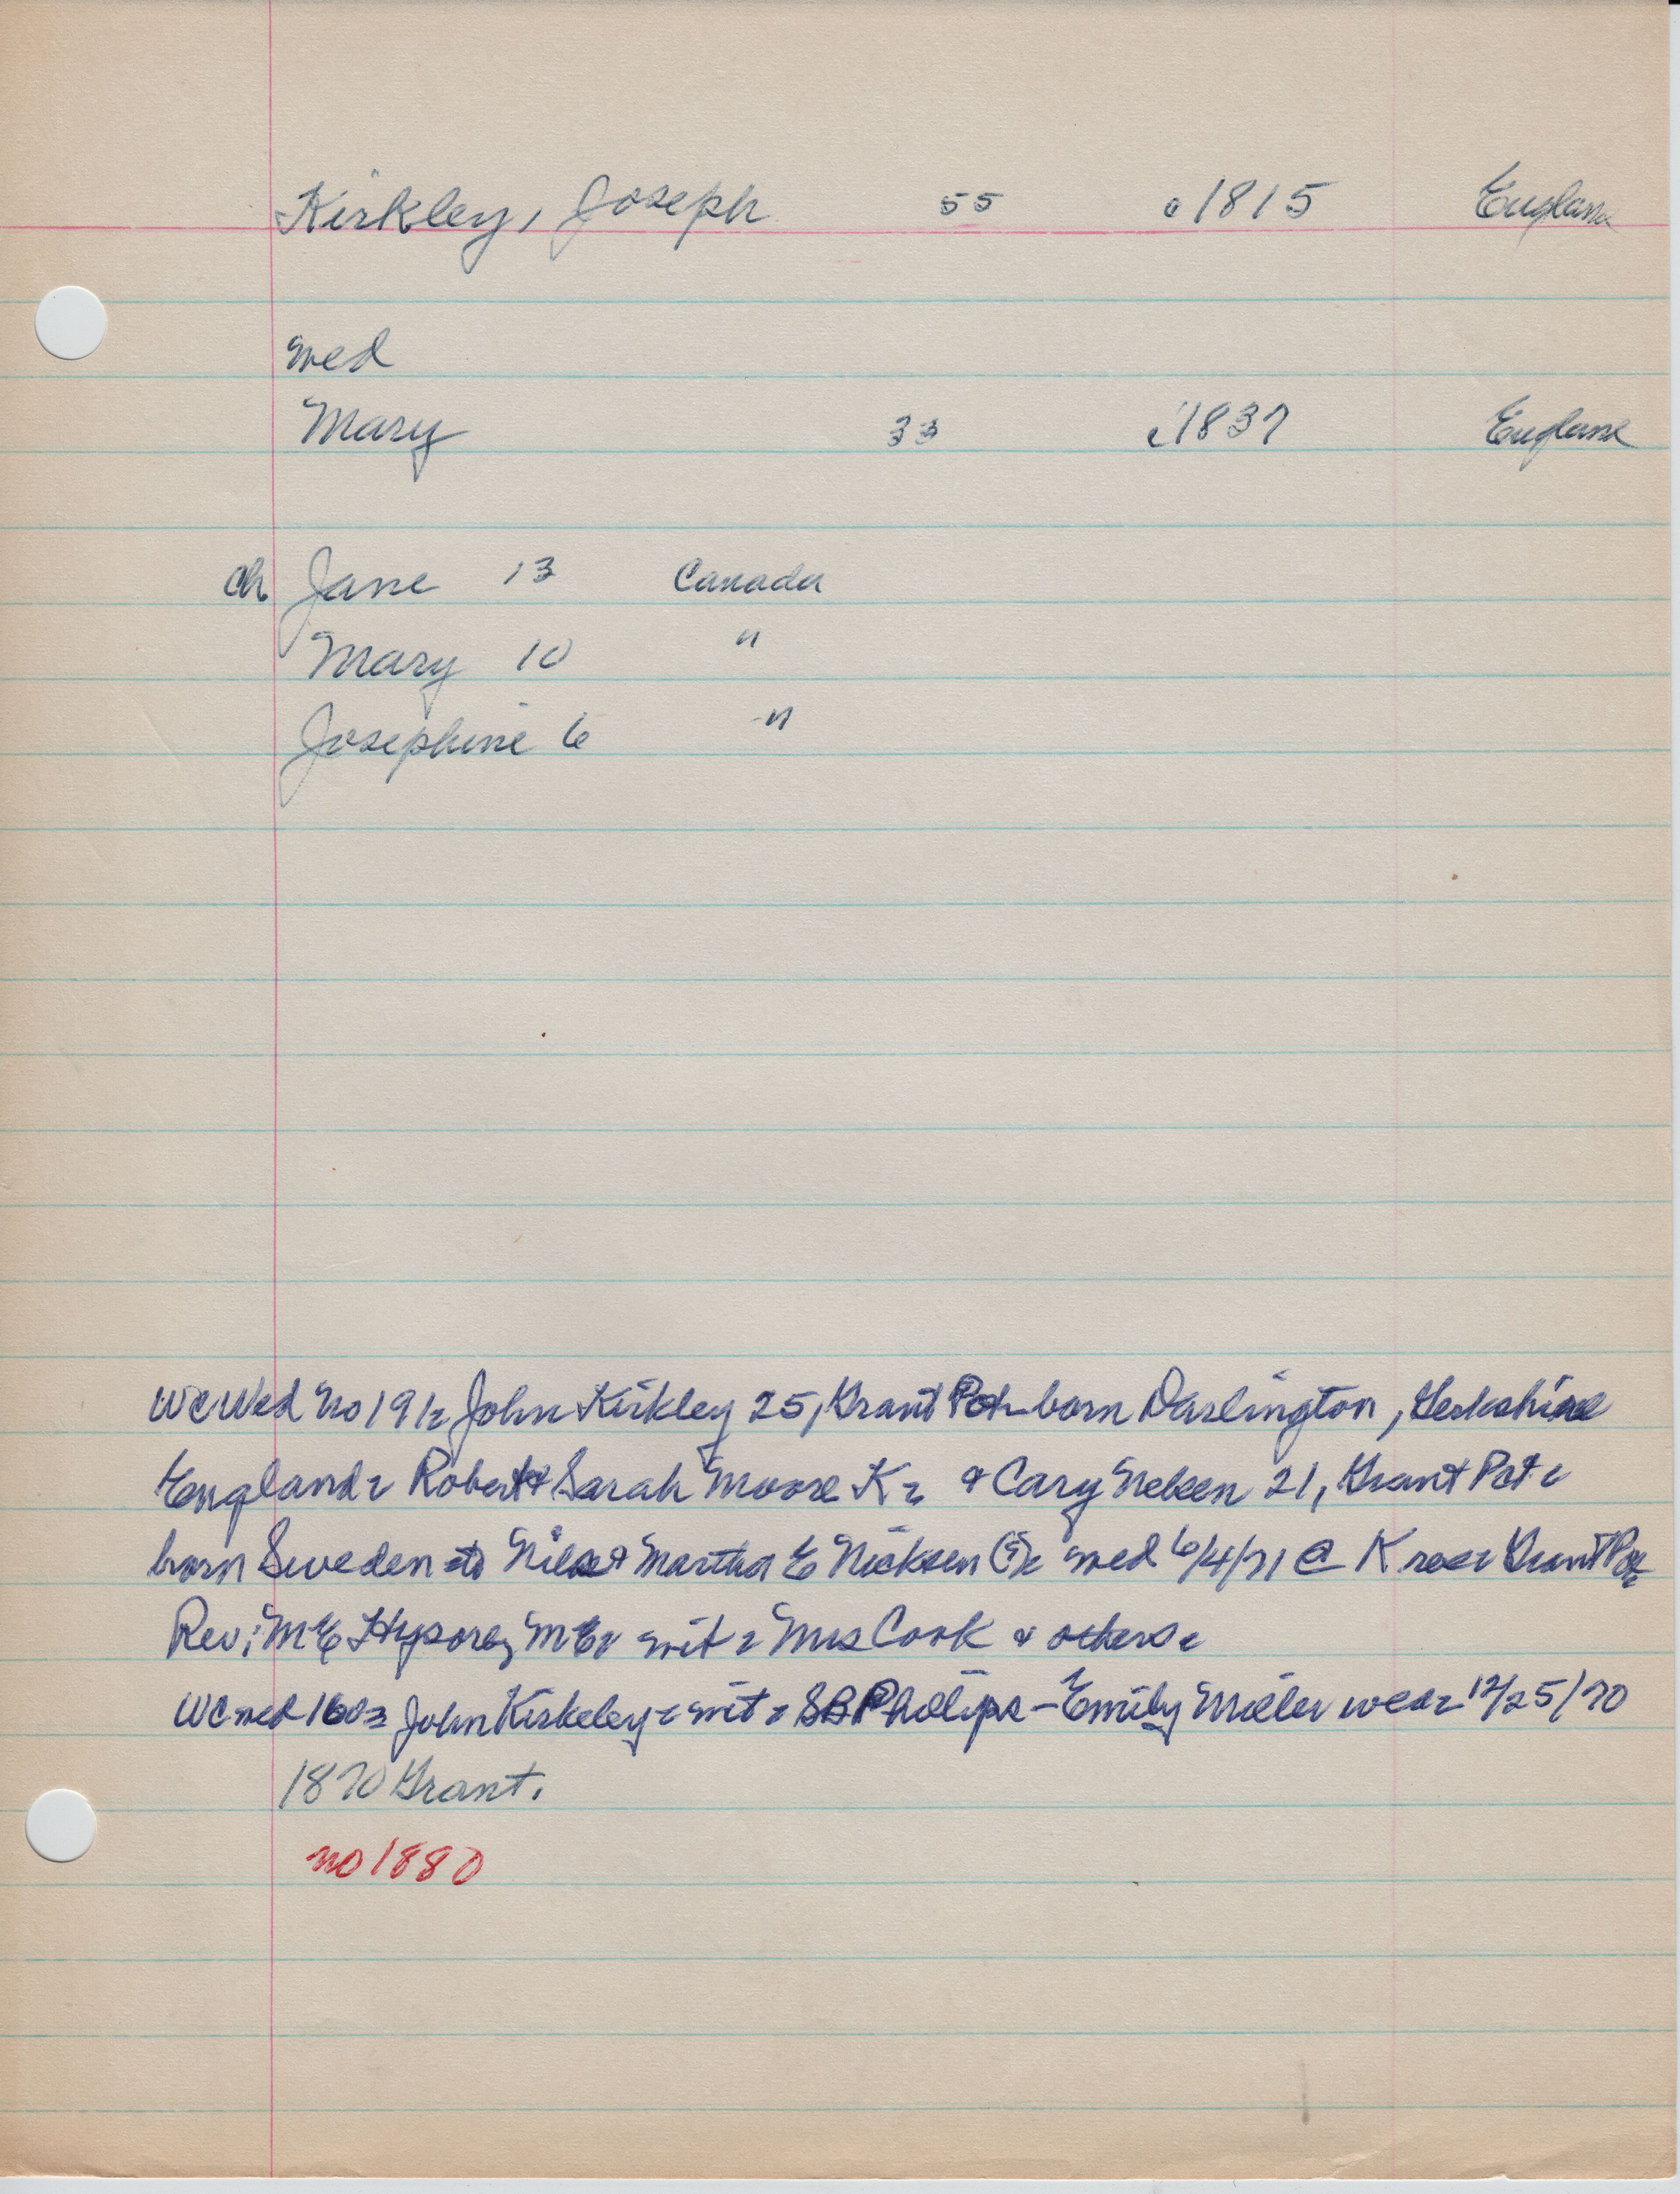 Kirkley, Joseph 55 c1815 England
wed
Mary 33 c1837 England
ch Jane 13 Canada
Mary 10 "
Josephine 6 "
WC Wed No 191: John Kirkley 25, Grant Pot born Darlington, Yorkshire
England: Robert & Sarah Moore K: & Cary Neleen 21, Grant Pot:
born Sweden to Niles & Martha E (?): wed 6/4/71 @ K res: Grant Pot:
Rev: ME ME: wit: Mrs Cook & others:
WC wed 160: John Kirkeley: wit: SB Phillips - Emily Miller wed: 12/25/70
1870 Grant.
no 1880